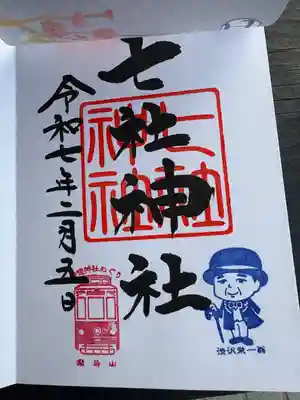 七社神社
令和七年二月五日
七社
神社
飛鳥山
渋沢栄一翁